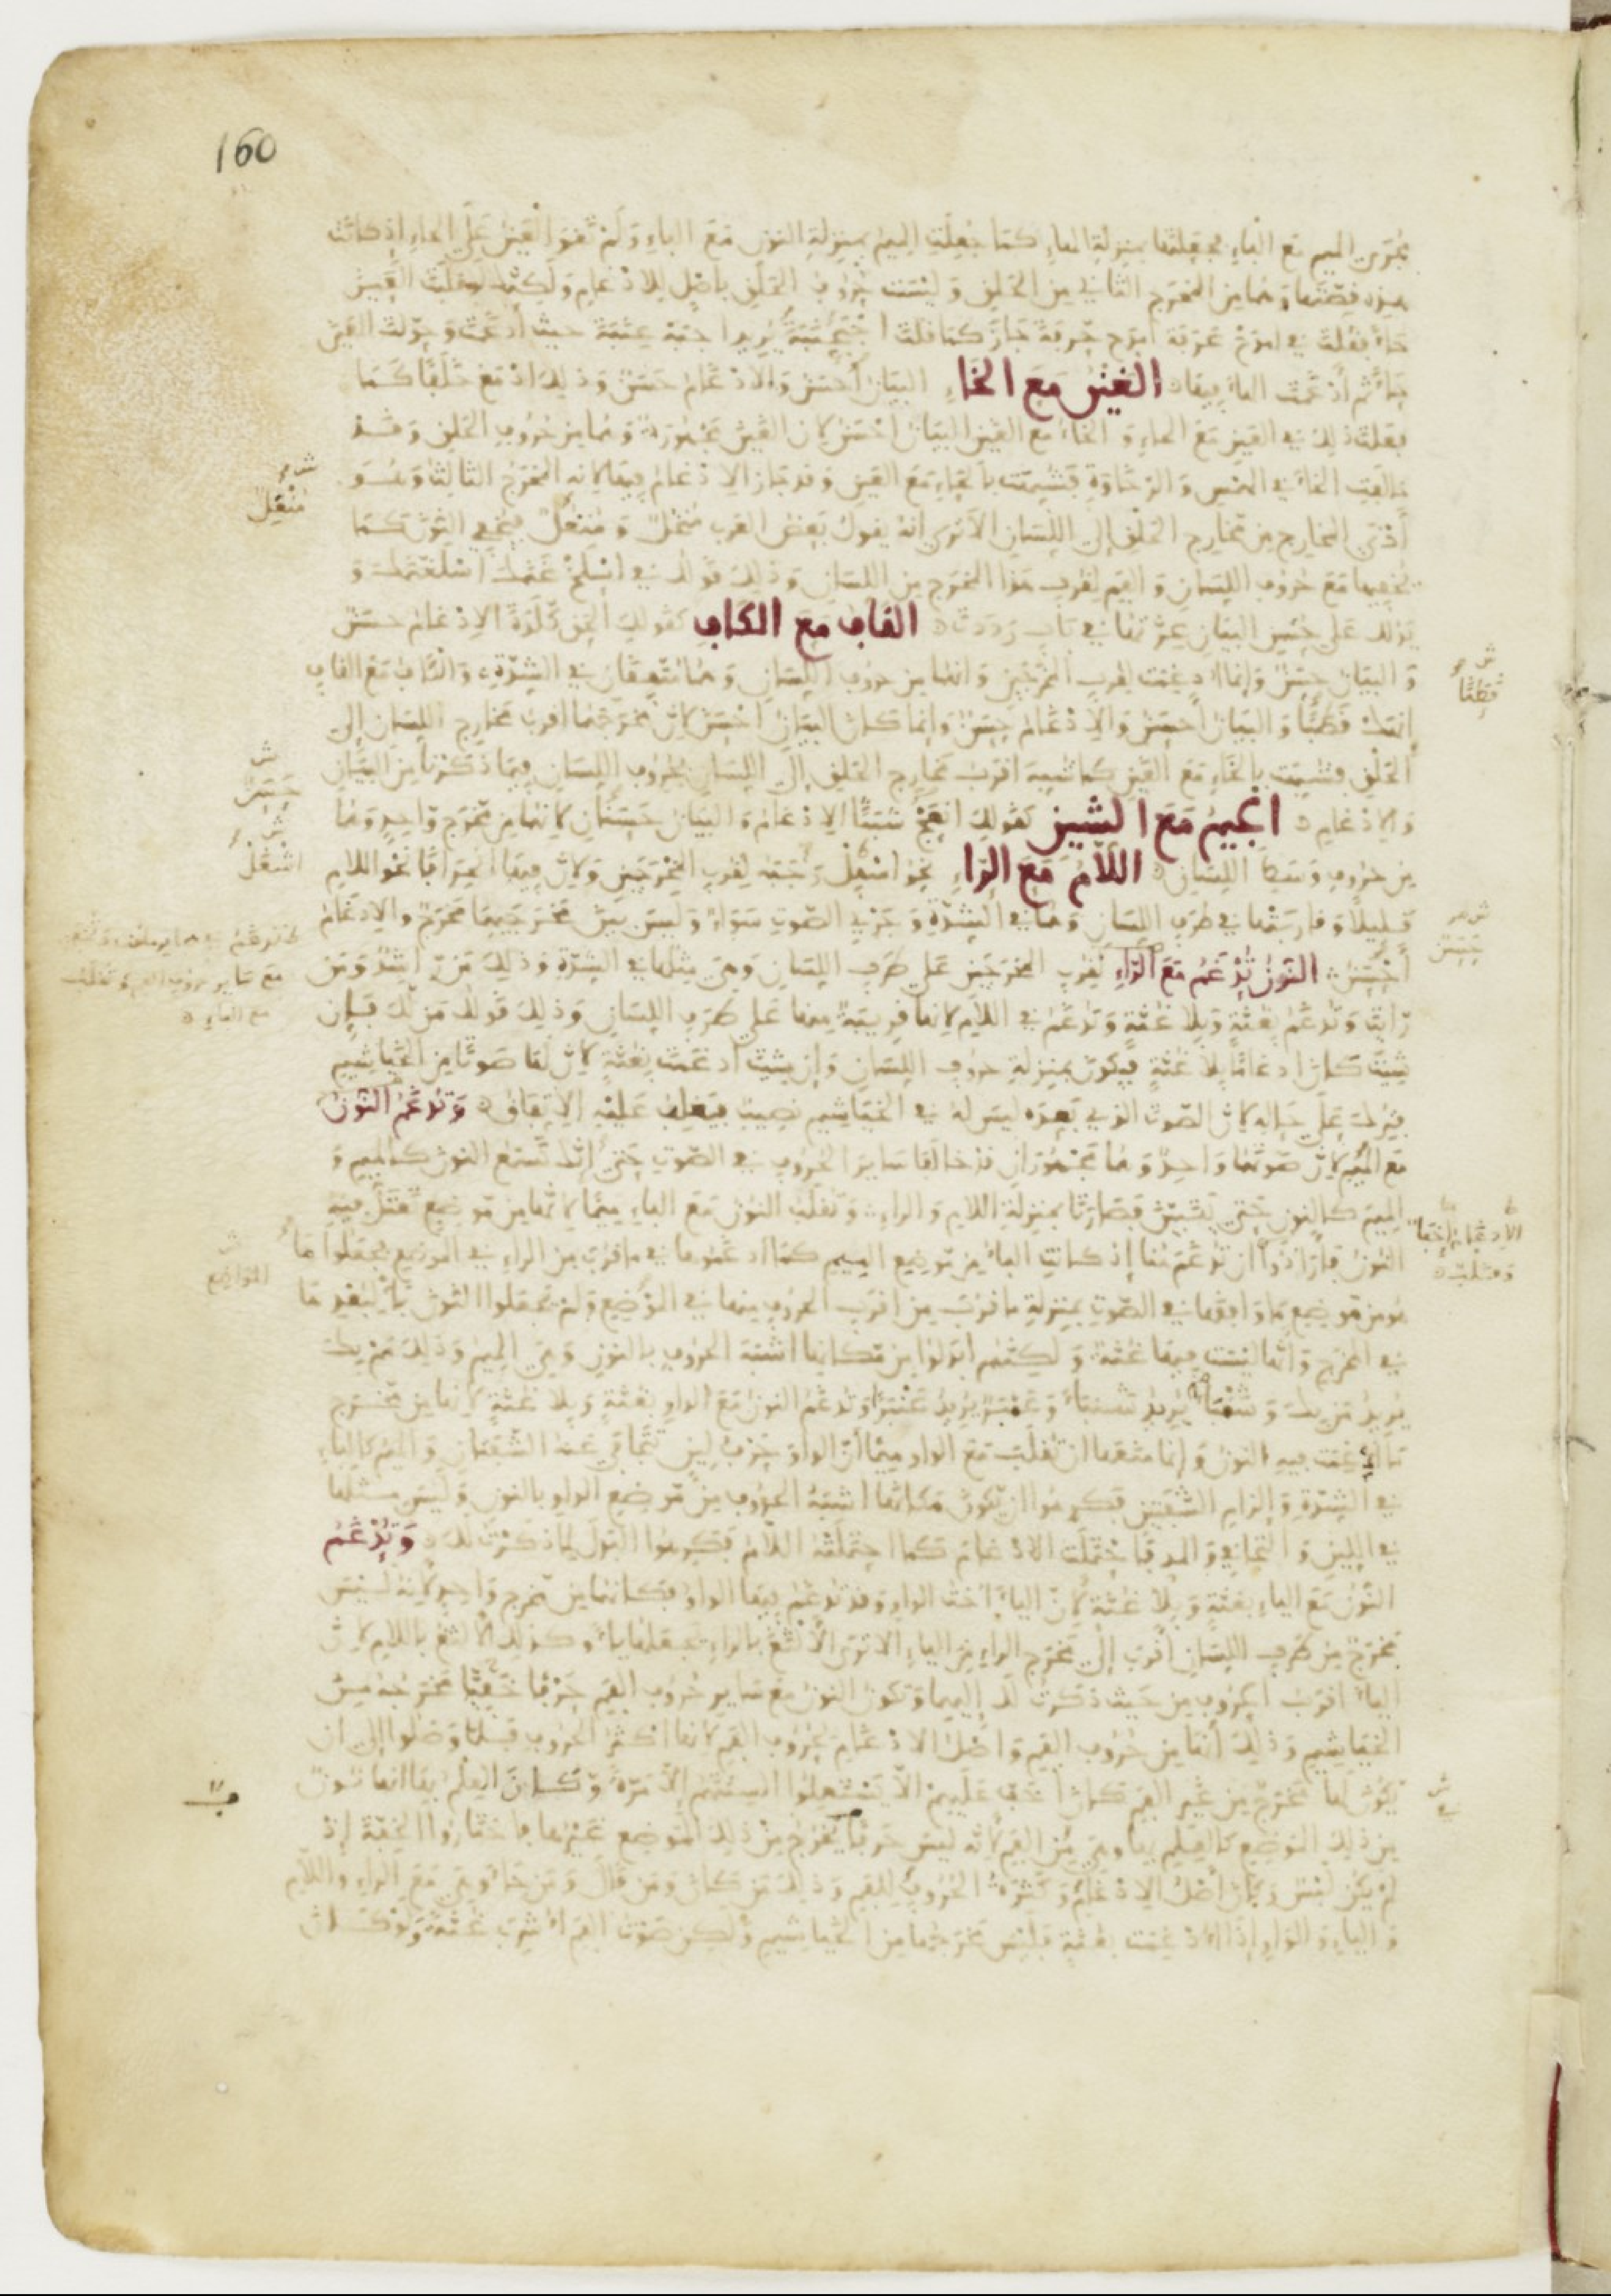 160
تجرى الميم مع الباء فجعلتها بمنزلة الهاء كما جعلت الميم بمنزلة النون مع الباء ولم تقو العين على الحاء إذ كانت
هذه قصتها وهما من المخرج الثاني من الحلق وليست حروف الحلق بأصل للادغام ولكنك لو قلبت العين
حاء فقلت في امدح عرفة امدح حرفة جاز كما قلت اجبحتبه يريد اجبه عتبة حيث أدغمت وحولت العين
حاء ثم أدغمت الهاء فيها الغين مع الخاء البيان أحسن والادغام حسن وذلك ادمغ خلفا كما
فعلت ذلك في العين مع الحاء والخاء مع الغين البيان أحسن لان الغين مجهورة وهما من حروف الحلق وقد
خالفت الخاء في الهمس والرخاوة فشبهت بالحاء مع العين وقد جاز الادغام فيها لانه المخرج الثالث وهو
أدنى المخارج من مخارج الحلق إلى اللسان الا ترى انه يقول بعض العرب منخل ومنغل فيخفي النون كما
يخفيها مع حروف اللسان والفم لقرب هذا المخرج من اللسان وذلك قولك في اسلخ غنمك اسلغنمك و
يدلك على حسن البيان عزتها في باب رددت القاف مع الكاف كقولك الحق كلدة الادغام حسن
والبيان حسن وإنما ادغمت لقرب المخرجين وانهما من حروف اللسان وهما متفقان في الشدة والكاف مع القاف
انهك قطنا والبيان أحسن والادغام حسن وإنما كان البيان أحسن لان مخرجهما اقرب مخارج اللسان إلى
الحلق فشبهت بالخاء مع الغين كما شبه اقرب مخارج الحلق إلى اللسان بحروف اللسان فيما ذكرنا من البيان
والادغام الجيم مع الشين كقولك ابعج شبثا الادغام والبيان حسنان لانهما من مخرج واحد وهما
من حروف وسط اللسان اللام مع الراء نحو اشغل رحبه لقرب المخرجين ولان فيها انحرافا نحو اللام
قليلا وقاربتها في طرف اللسان وهما في الشدة وجري الصوت سواء وليس بين مخرجيهما مخرج والادغام
أحسن النون تدغم مع الراء لقرب المخرجين على طرف اللسان وهي مثلها في الشدة وذلك من راشد ومن
رايت وتدغم بغنة وبلا غنة وتدغم في اللام لانها قريبة منها على طرف اللسان وذلك قولك من لك فإن
شئت كان ادغاما بلا غنة فيكون بمنزلة حروف اللسان وإن شئت ادغمت بغنة لان لها صوتا من الخياشيم
فترك على حاله لان الصوت الذي بعده ليس له في الخياشيم نصيب فيغلب عليه الاتفاق وتدغم النون
مع الميم لان صوتهما واحد وهما مجهوران قد خالفا سائر الحروف في الصوت حتى إنك تسمع النون كالميم و
الميم كالنون حتى يتبين فصارتا بمنزلة اللام والراء وتقلب النون مع الباء ميما لانها من موضع تعتل فيه
النون فأرادوا أن تدغم هنا إذ كانت الباء من موضع الميم كما ادغموها في ما قرب من الراء في الموضع فجعلوا ما
هو من موضع ما وافقها في الصوت بمنزلة ما قرب من اقرب الحروف منها في الموضع ولم يجعلوا النون باء لبعدها
في المخرج وانها ليست فيها غنة ولكنهم ابدلوا من مكانها اشبه الحروف بالنون وهي الميم وذلك ممبك
يريد من بك وشمباء يريد شنباء وعمبر يريد عنبر وتدغم النون مع الواو بغنة وبلا غنة لانها من مخرج
ما ادغمت فيه النون وإنما منعها ان تقلب مع الواو ميما أن الواو حرف لين تتجافى عنه الشفتان والميم كالباء
في الشدة وإلزام الشفتين فكرهوا ان يكون مكانها اشبه الحروف من موضع الواو بالنون وليس مثلها
في اللين والتجافي والمد فاحتملت الادغام كما احتملته اللام فكرهوا البدل لما ذكرت لك وتدغم
النون مع الياء بغنة وبلا غنة لان الياء اخت الواو وقد تدغم فيها الواو فكانهما من مخرج واحد لانه ليس
مخرج من طرف اللسان أقرب إلى مخرج الراء من الياء الا ترى الألثغ بالراء يجعلها ياء وكذلك الألثغ باللام لان
الياء اقرب الحروف من حيث ذكرت لك إليهما وتكون النون مع سائر حروف الفم حرفا خفيا مخرجه من
الخياشيم وذلك أنها من حروف الفم وأصل الادغام لحروف الفم لانها اكثر الحروف فلما وصلوا إلى ان
يكون لها مخرج من غير الفم كان اخف عليهم الا يستعملوا السنتهم إلا مرة وكان العلم بها انها نون
من ذلك الموضع كالعلم بها وهي من الفم لانه ليس حرف يخرج من ذلك الموضع غيرها فاختاروا الخفة إذ
لم يكن لبس وكان أصل الادغام وكثرة الحروف للفم وذلك من كان ومن قال ومن جاء وهي مع الراء واللام
والياء والواو إذا ادغمت بغنة فليس مخرجها من الخياشيم ولكن صوت الفم اشرب غنة ولو كان
منغل
قطنا
حسن
اشغل
حسن
المواضع